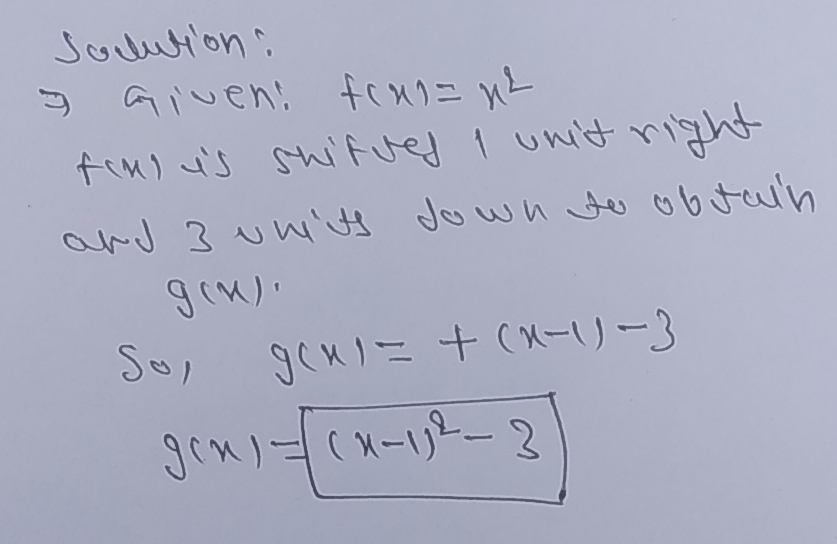 Solution:
⇒ Given: f(x) = x²
f(x) is shifted 1 unit right
and 3 units down to obtain
g(x).
So, g(x) = f(x-1) - 3
g(x) = (x-1)² - 3